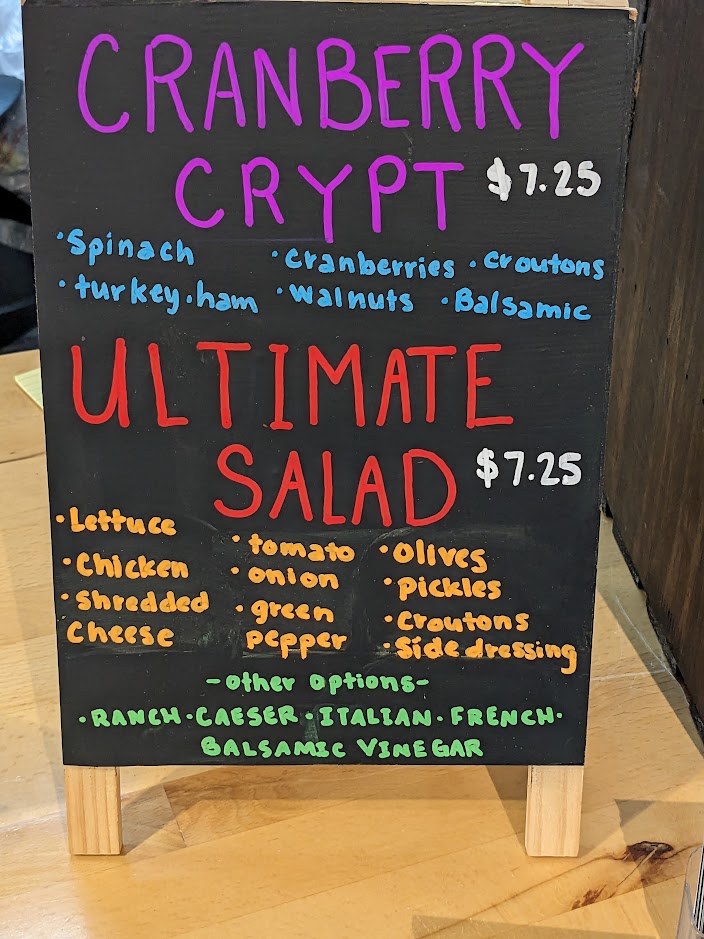 CRANBERRY
CRYPT $7.25
·Spinach ·Cranberries ·Croutons
·turkey·ham ·Walnuts ·Balsamic
ULTIMATE
SALAD $7.25
·Lettuce ·tomato ·Olives
·Chicken ·onion ·Pickles
·Shredded ·green ·Croutons
Cheese pepper ·Side dressing
-other options-
·RANCH·CAESER·ITALIAN·FRENCH·
BALSAMIC VINEGAR